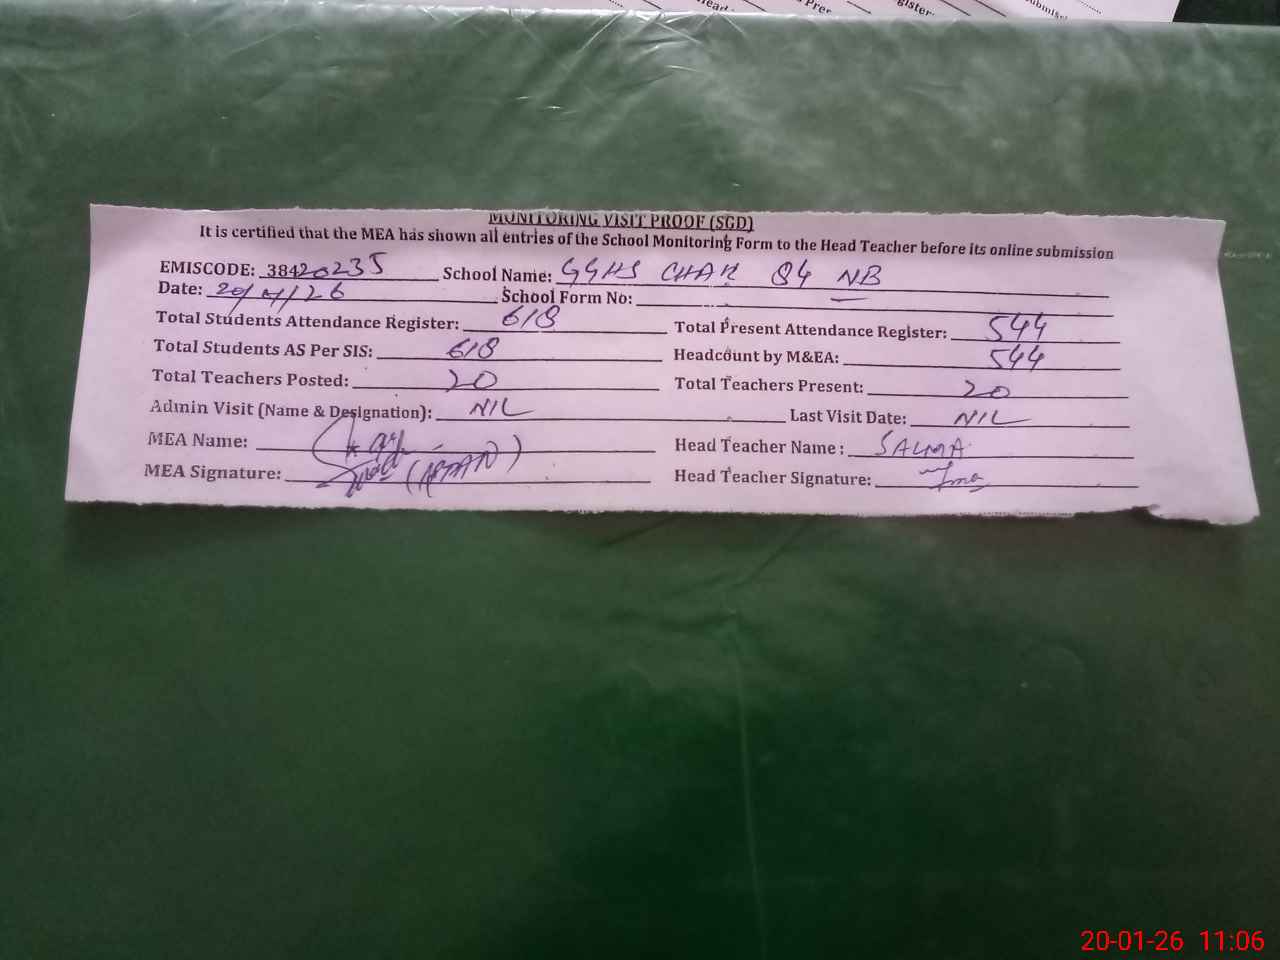 MONITORING VISIT PROOF (SGD)
It is certified that the MEA has shown all entries of the School Monitoring Form to the Head Teacher before its online submission
EMISCODE: 38420235 School Name: GGHS CHAK 84 NB
Date: 20/01/26 School Form No:
Total Students Attendance Register: 618 Total Present Attendance Register: 544
Total Students AS Per SIS: 618 Headcount by M&EA: 544
Total Teachers Posted: 20 Total Teachers Present: 20
Admin Visit (Name & Designation): NIL Last Visit Date: NIL
MEA Name: Head Teacher Name: SALMA
MEA Signature: Head Teacher Signature:
20-01-26 11:06